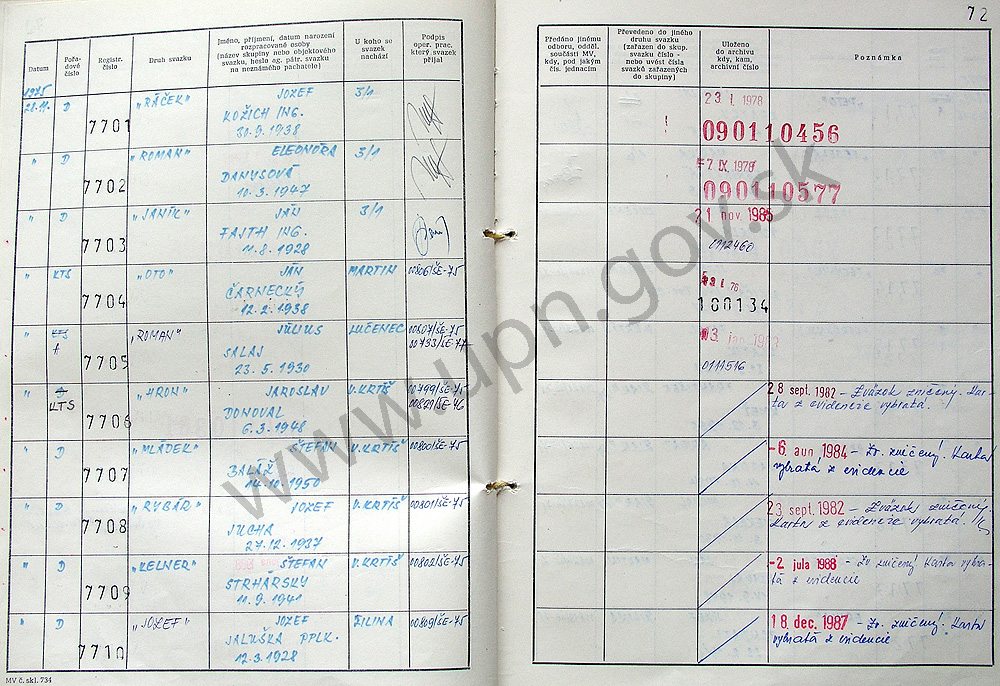 72
Datum
Pořadové číslo
Registr. číslo
Druh svazku
Jméno, příjmení, datum narození rozpracované osoby (název skupiny nebo objektového svazku, heslo ag. pátr. svazku na neznámého pachatele)
U koho se svazek nachází
Podpis oper. prac. který svazek přijal
Předáno jinému odboru, odděl. součásti MV, kdy, pod jakým čís. jednacím
Převedeno do jiného druhu svazku (zařazen do skup. svazku číslo - nebo uvést čísla svazků zařazených do skupiny)
Uloženo do archivu kdy, kam, archivní číslo
Poznámka
1975
D 7701 „RÁČEK" JOZEF 3/1
KOŽICH ING.
30.9.1938
23. I. 1978
090110456
" D 7702 „ROMAN" ELEONÓRA 3/1
DANYSOVÁ
10.3.1947
IX. 1978
090110577
" D 7703 „JANÍK" JÁN 3/1
FAJTH ING.
11.8.1928
21 nov. 1985
0912460
" KTS 7704 „OTO" JÁN MARTIN 00806/ŠE-75
ČARNECKÝ
12.2.1938
76
100134
" 7705 „ROMAN" JÚLIUS LUČENEC 00807/ŠE-75
00733/ŠE-77
SALAJ
23.5.1930
03.
0111516
" D KTS 7706 „HRON" JAROSLAV V.KRTÍŠ 00799/ŠE-75
DONOVAL
6.3.1948
28 sept. 1982 – Zväzok zničený. Karta z evidencie vybratá.
" D 7707 „MLÁDEK" ŠTEFAN V.KRTÍŠ 00800/ŠE-75
BALÁŽ
14.10.1950
-6. aug 1984 – Zv. zničený. Karta vybratá z evidencie
" D 7708 „RYBÁR" JOZEF V.KRTÍŠ 00801/ŠE-75
JUCHA
27.12.1937
23 sept. 1982 – Zväzok zničený. Karta z evidencie vybratá.
" D 7709 „KELNER" ŠTEFAN V.KRTÍŠ 00802/ŠE-75
STRHÁRSKY
11.9.1941
-2 júla 1988 – Zv zničený Karta vybratá z evidencie
" D 7710 „JOZEF" JOZEF ŽILINA 00809/ŠE-75
JALUŠKA PPLK.
12.3.1928
18. dec. 1987 – Zv. zničený. Karta vybratá z evidencie
MV č. skl. 734
www.upn.gov.sk